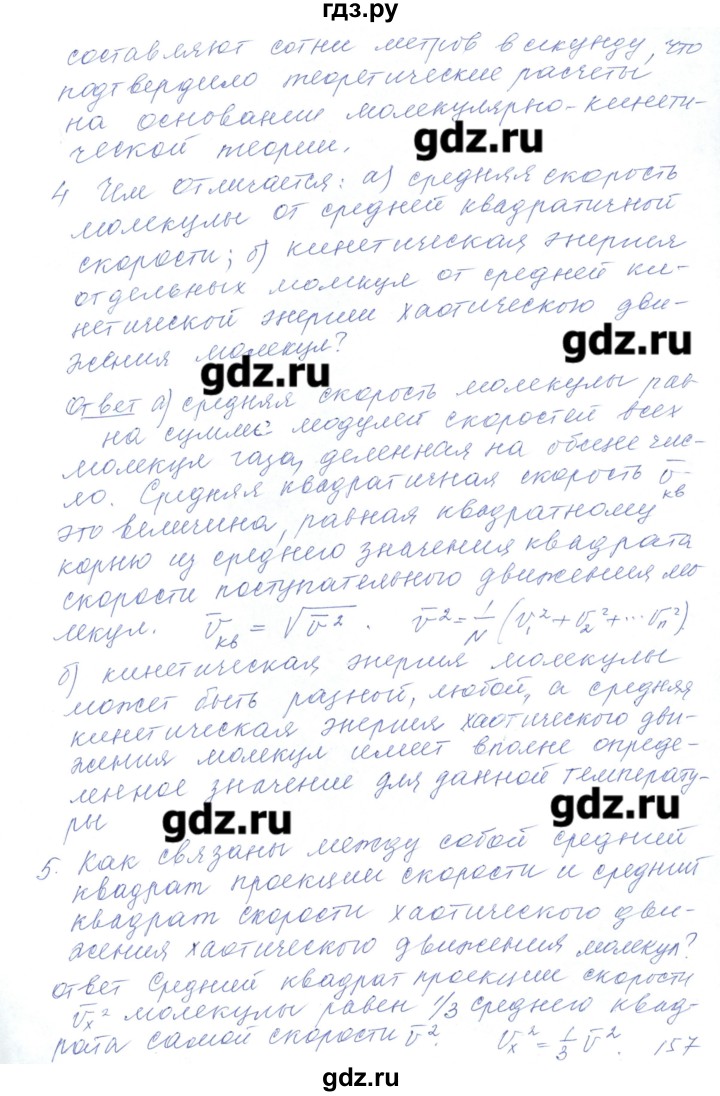 гдз.ру
составляют сотни метров в секунду, что
подтвердило теоретические расчеты
на основании молекулярно-кинети-
ческой теории.
gdz.ru
4 Чем отличается: а) средняя скорость
молекулы от средней квадратичной
скорости; б) кинетическая энергия
отдельных молекул от средней ки-
нетической энергии хаотического дви-
жения молекул?
gdz.ru
gdz.ru
Ответ а) средняя скорость молекулы рав-
на сумме модулей скоростей всех
молекул газа, деленная на общее чис-
ло. Средняя квадратичная скорость v̄кв
это величина, равная квадратному
корню из среднего значения квадрата
скорости поступательного движения мо
лекул. v̄кв = √v̄². v̄² = 1/N (v₁² + v₂² + ... vₙ²)
б) кинетическая энергия молекулы
может быть разной, любой, а средняя
кинетическая энергия хаотического дви-
жения молекул имеет вполне опреде-
ленное значение для данной температу-
ры
gdz.ru
gdz.ru
5. Как связаны между собой средний
квадрат проекции скорости и средний
квадрат скорости хаотического дви-
жения хаотического движения молекул?
ответ Средний квадрат проекции скорости
v̄ₓ² молекулы равен 1/3 среднего квад-
рата самой скорости v̄². v̄ₓ² = 1/3 v̄². 157
gdz.ru